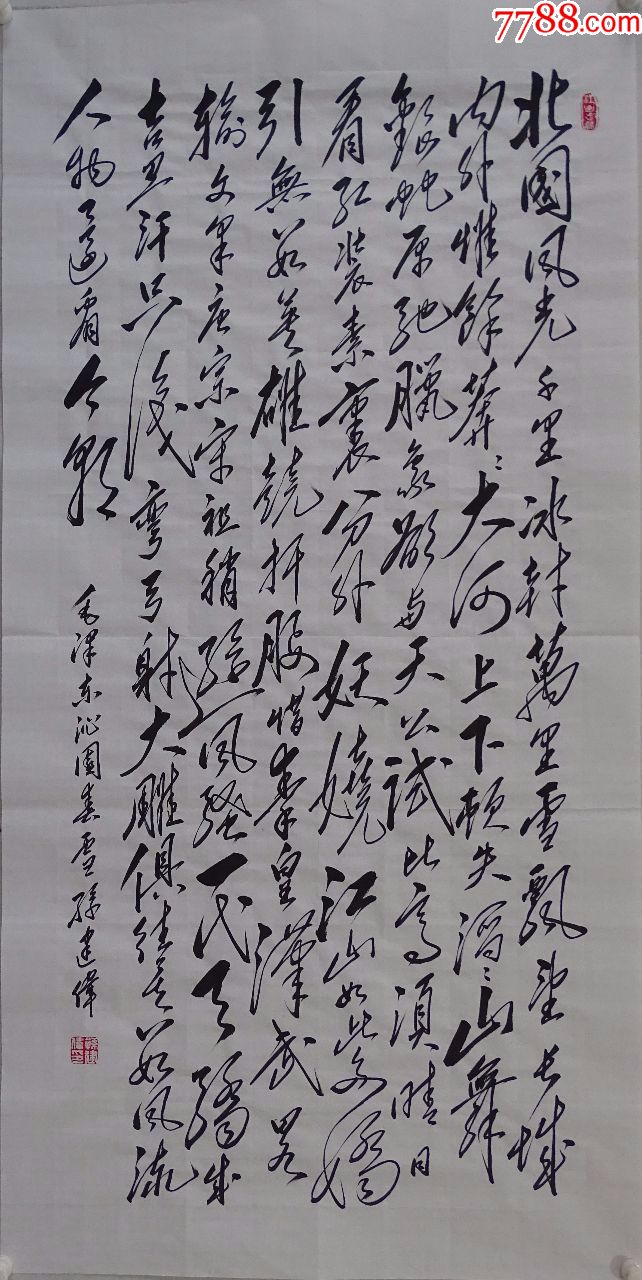 7788.com
北國风光千里冰封萬里雪飄望长城
内外惟餘莽〻大河上下頓失滔〻山舞
銀蛇原驰臘象欲与天公試比高須晴日
看红装素裹分外妖嬈江山如此多嬌
引無数英雄競折腰惜秦皇漢武略
输文采唐宗宋祖稍遜风骚一代天骄成
吉思汗只識彎弓射大雕俱往矣数风流
人物還看今朝
毛泽东沁園春雪孫建偉